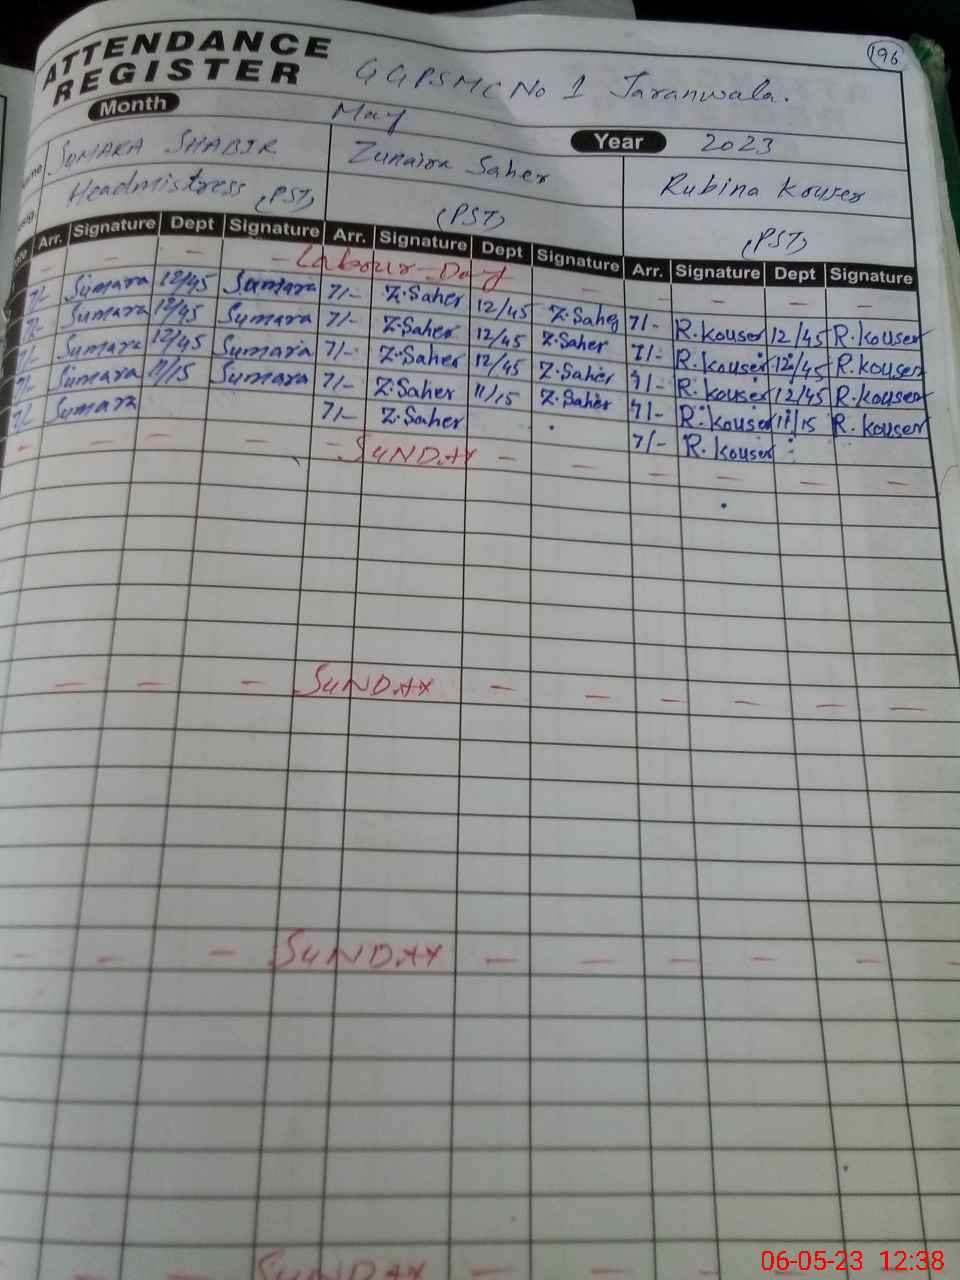 196
ATTENDANCE
REGISTER
GGPSMC No 1 Jaranwala.
Month May Year 2023
SUMARA SHABIR Zunaira Saher Rubina Kouser
Headmistress (PST) (PST) (PST)
Arr. Signature Dept Signature Arr. Signature Dept Signature Arr. Signature Dept Signature
- - - - Labour-Day - - - - -
7/- Sumara 12/45 Sumara 7/- Z.Saher 12/45 Z.Saher 7/- R.kouser 12/45 R.kouser
7/- Sumara 12/45 Sumara 7/- Z.Saher 12/45 Z.Saher 7/- R.kouser 12/45 R.kouser
7/- Sumara 12/45 Sumara 7/- Z.Saher 12/45 Z.Saher 7/- R.kouser 12/45 R.kouser
7/- Sumara 11/15 Sumara 7/- Z.Saher 11/15 Z.Saher 7/- R.kouser 11/15 R.kouser
7/- Sumara 7/- Z.Saher 7/- R.kouser
- - - - - SUNDAY - - - - - -
- - - SUNDAY - - - - - -
- - - SUNDAY - - - - - -
SUNDAY
06-05-23 12:38